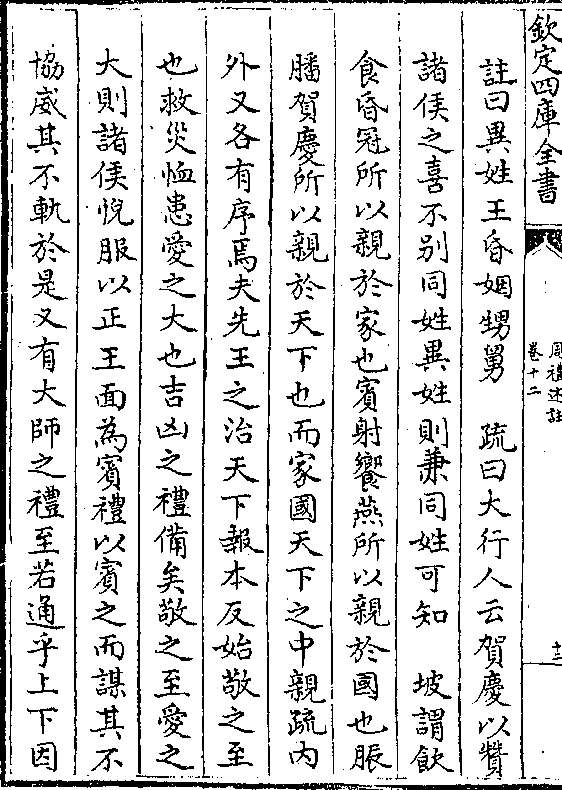 欽定四庫全書
周禮述註
卷十二
十二
註曰異姓王昏姻甥舅　疏曰大行人云賀慶以贊
諸侯之喜不别同姓異姓則兼同姓可知　坡謂飲
食昏冠所以親於家也賓射饗燕所以親於國也脤
膰賀慶所以親於天下也而家國天下之中親疏内
外又各有序焉夫先王之治天下報本反始敬之至
也救災恤患愛之大也吉凶之禮備矣敬之至愛之
大則諸侯悅服以正王面為賓禮以賓之而謀其不
協威其不軌於是又有大師之禮至若通乎上下因